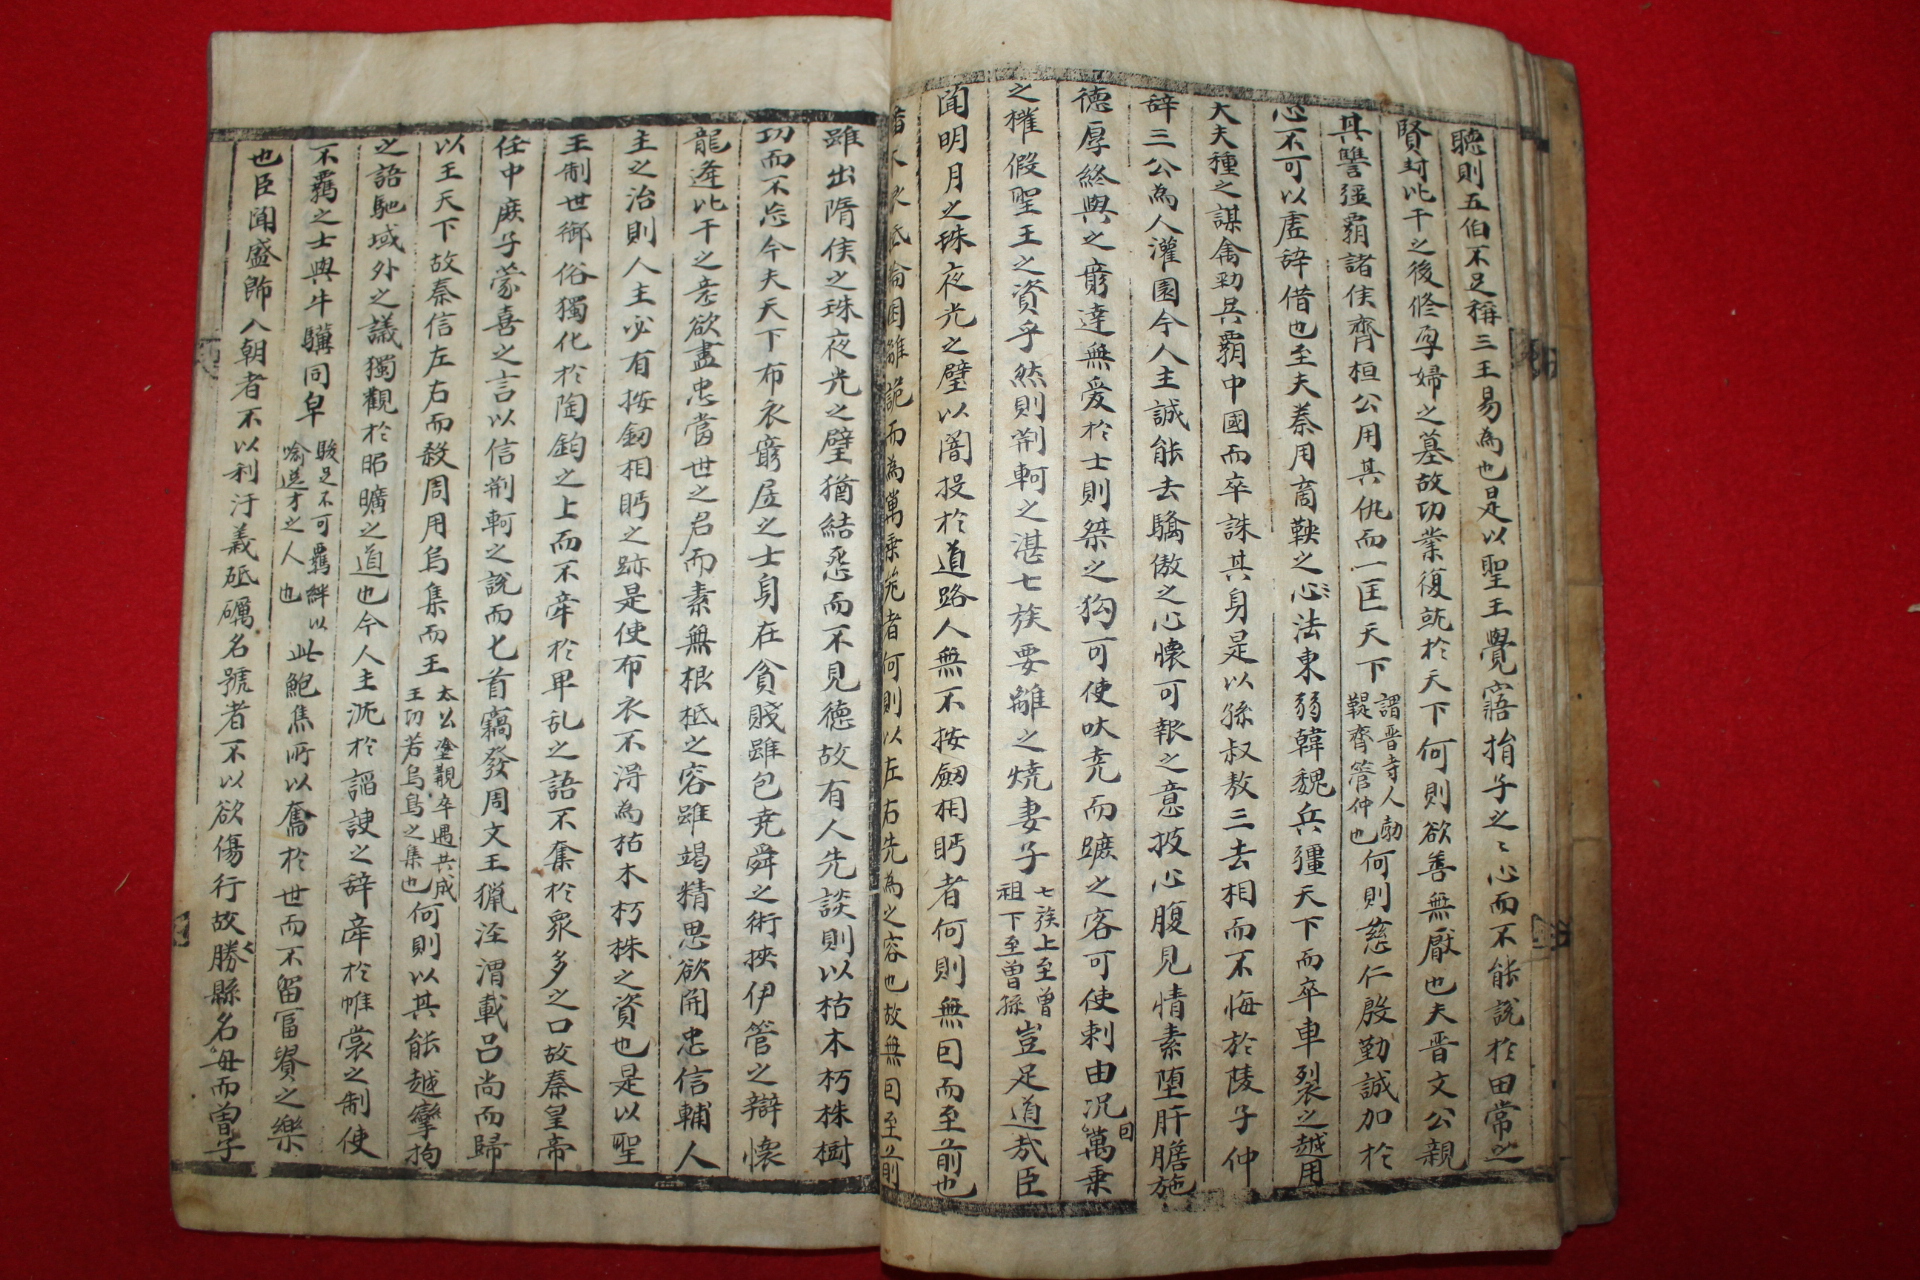 聽則五伯不足稱三王易為也是以聖王覺寤捐子之之心而不能說於田常之
賢封比干之後修孕婦之墓故功業復就於天下何則欲善無厭也夫晋文公親
其讐彊覇諸侯齊桓公用其仇而一匡天下謂晋寺人勃鞮齊管仲也何則慈仁殷勤誠加於
心不可以虛辞借也至夫秦用商鞅之法東弱韓魏兵彊天下而卒車裂之越用
大夫種之謀禽勁兵覇中國而卒誅其身是以孫叔敖三去相而不悔於陵子仲
辞三公為人灌園今人主誠能去驕傲之心懷可報之意披心腹見情素堕肝膽施
德厚終與之窮達無爱於士則桀之狗可使吠尭而蹠之客可使刺由况回萬乗
之權假聖王之資乎然則荆軻之湛七族要離之燒妻子七族上至曽祖下至曽孫豈足道哉臣
聞明月之珠夜光之璧以闇投於道路人無不按劒相眄者何則無因而至前也
蟠木之柢輪囷離詭而為萬乗器者何則以左右先為之容也故無因至前
雖出隋侯之珠夜光之璧猶結怨而不見德故有人先談則以枯木朽株樹
功而不忘今夫天下布衣窮居之士身在貧賤雖包尭舜之術挾伊管之辯懷
龍逄比干之意欲盡忠當世之君而素無根柢之容雖竭精思欲開忠信輔人
主之治則人主必有按劒相眄之跡是使布衣不得為枯木朽株之資也是以聖
王制世御俗獨化於陶鈞之上而不牽於卑乱之語不奪於衆多之口故秦皇帝
任中庶子蒙喜之言以信荆軻之說而匕首竊發周文王獵涇渭載呂尚而歸
以王天下故秦信左右而殺周用烏集而王太公塗覯卒遇共成王功若烏鳥之集也何則以其能越攣拘
之語馳域外之議獨觀於昭曠之道也今人主沉於謟諛之辞牽於帷裳之制使
不羈之士與牛驥同皁駿足不可羈絆以喻逸才之人也此鮑焦所以奮於世而不留冨貴之樂
也臣聞盛餙入朝者不以利汙義砥礪名號者不以欲傷行故勝縣名母而曽子